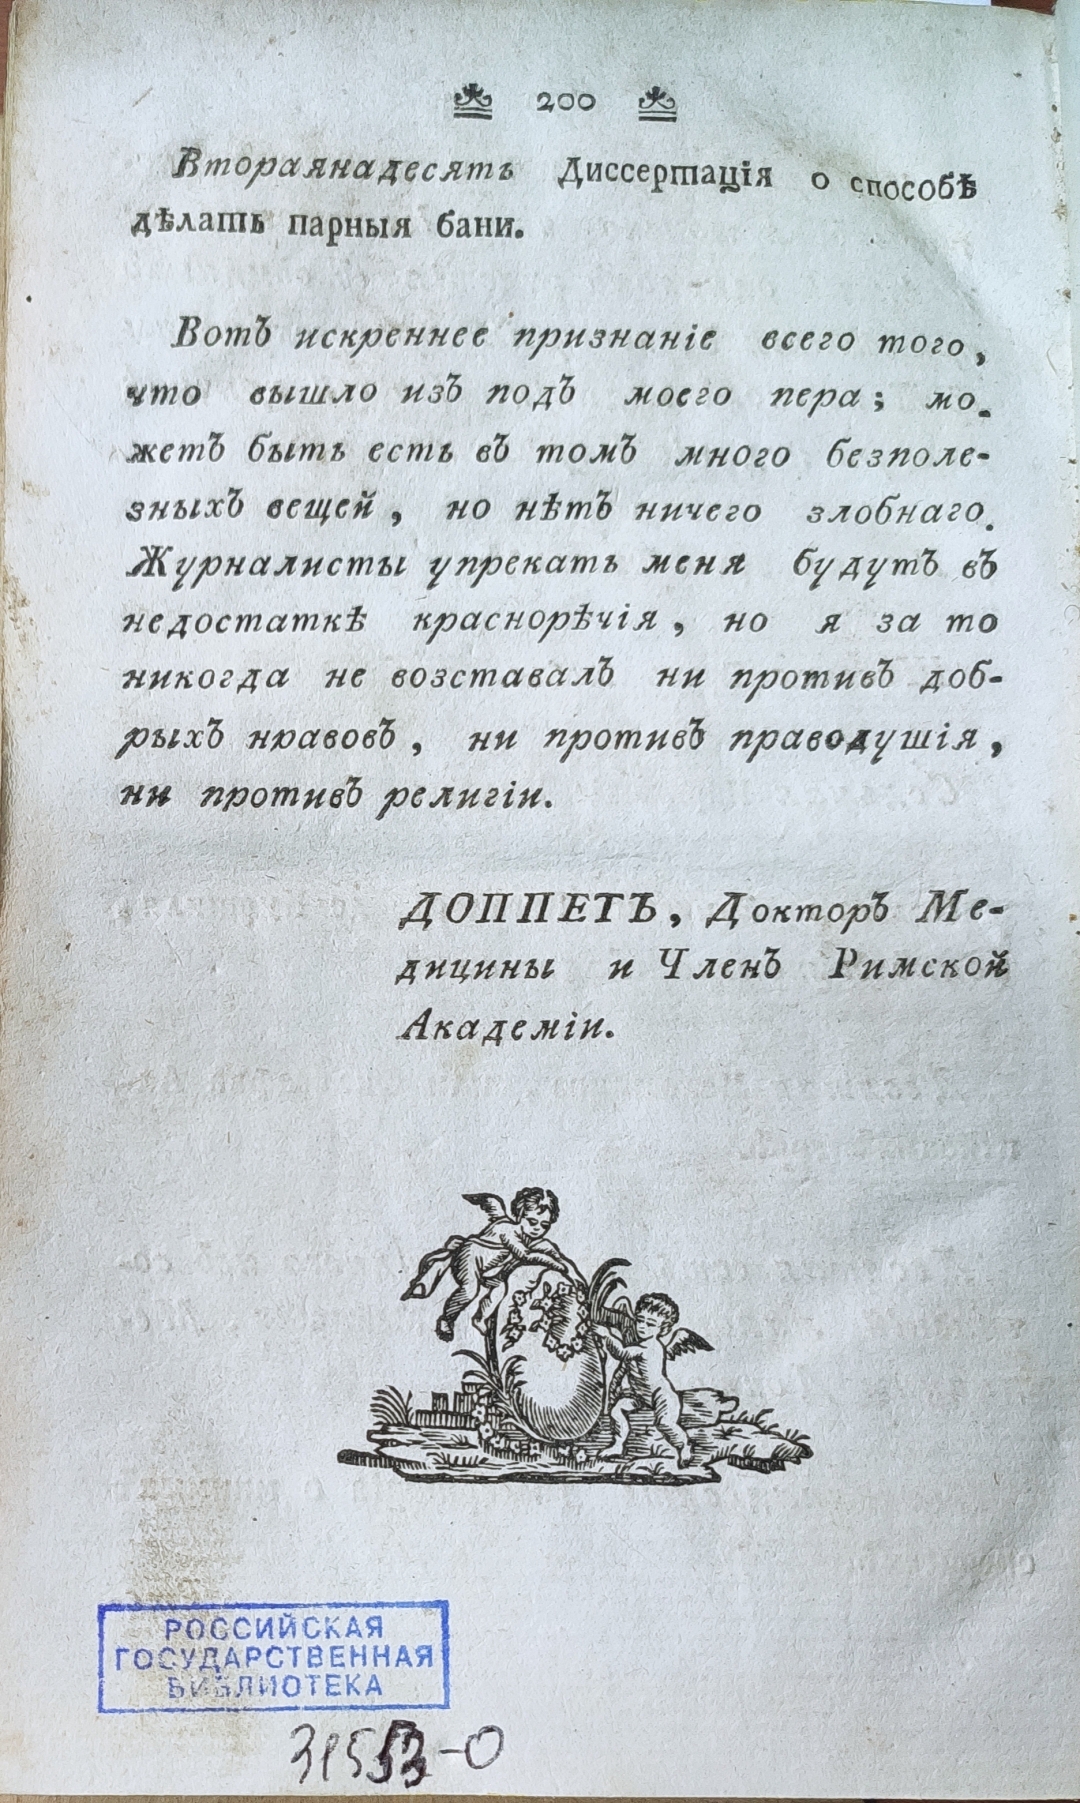 200
Втораянадесять Диссертація о способѣ
дѣлать парныя бани.
Вотъ искреннее признаніе всего того,
что вышло изъ подъ моего пера; мо-
жетъ быть есть въ томъ много безполе-
зныхъ вещей, но нѣтъ ничего злобнаго.
Журналисты упрекать меня будутъ въ
недостаткѣ краснорѣчія, но я за то
никогда не возставалъ ни противъ доб-
рыхъ нравовъ, ни противъ праводушія,
ни противъ религіи.
ДОППЕТЪ, Докторъ Ме-
дицины и Членъ Римской
Академіи.
РОССИЙСКАЯ
ГОСУДАРСТВЕННАЯ
БИБЛИОТЕКА